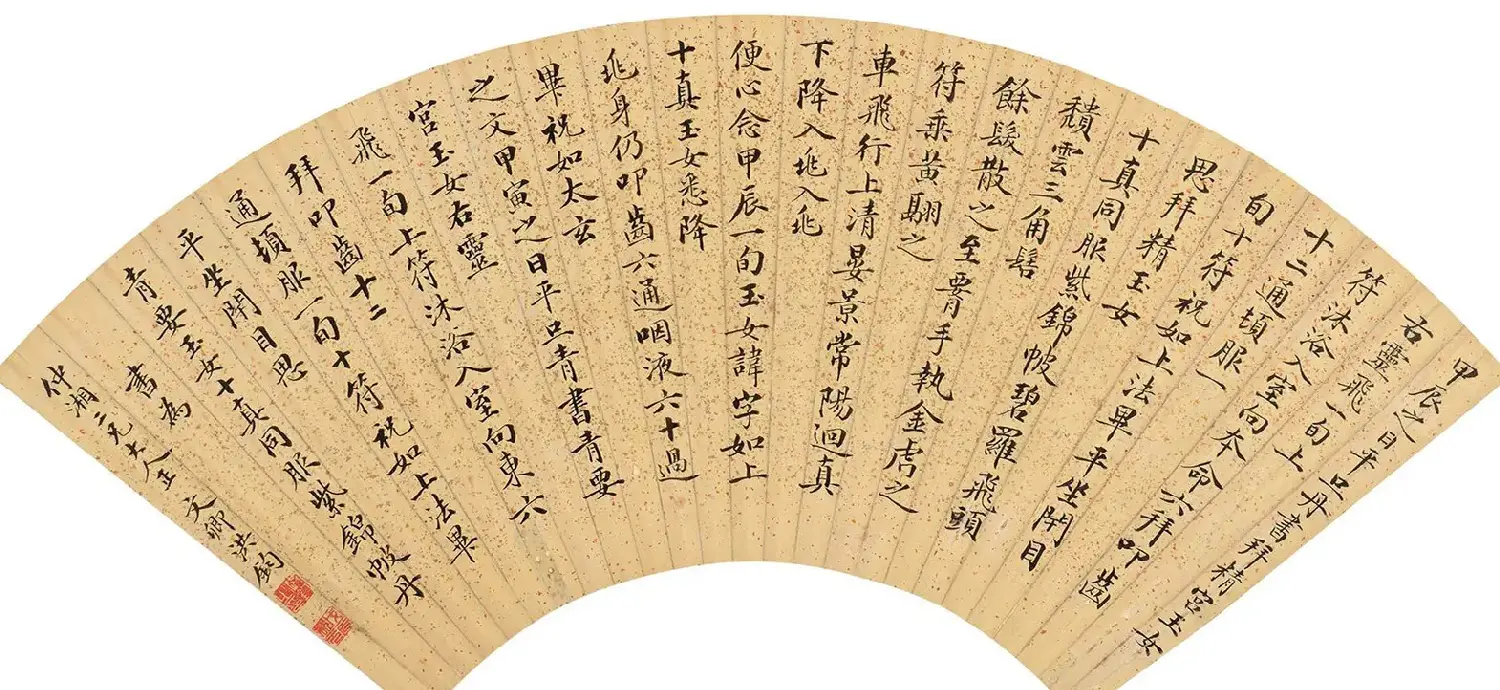 甲辰之日平旦丹書拜精宮玉女
右靈飛一旬上
符沐浴入室向本命六拜叩齒
十二通頓服一
旬十符祝如上法畢平坐閉目
思拜精玉女
十真同服紫錦帔碧羅飛頭
穨雲三角髻
餘髮散之至要手執金虎之
符乘黃翮之
車飛行上清晏景常陽迴真
下降入兆入兆
便心念甲辰一旬玉女諱字如上
十真玉女悉降
兆身仍叩齒六通咽液六十過
畢祝如太玄
之文甲寅之日平旦青書青要
宮玉女右靈
飛一旬上符沐浴入室向東六
拜叩齒十二
通頓服一旬十符祝如上法畢
平坐閉目思
青要玉女十真同服紫錦帔丹
書為
仲湘二兄大人正 文卿洪鈞